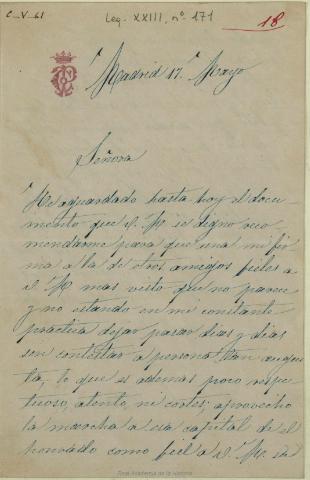 C-V-61
Leg. XXIII, nº 171
18
Madrid 17. Mayo
Señora
He aguardado hasta hoy el docu
mento que S. M. se digno reco
mendarme para que una mi fir
ma a la de otros amigos fieles a
S. M. mas visto que no parece
y no estando en mi constante
practica dejar pasar dias y dias
sin contestar a persona tan augus
ta, lo que es ademas poco respe
tuoso, atento, ni cortes; aprovecho
la marcha a esa capital de el
honrado como fiel a S. M. su
Real Academia de la Historia